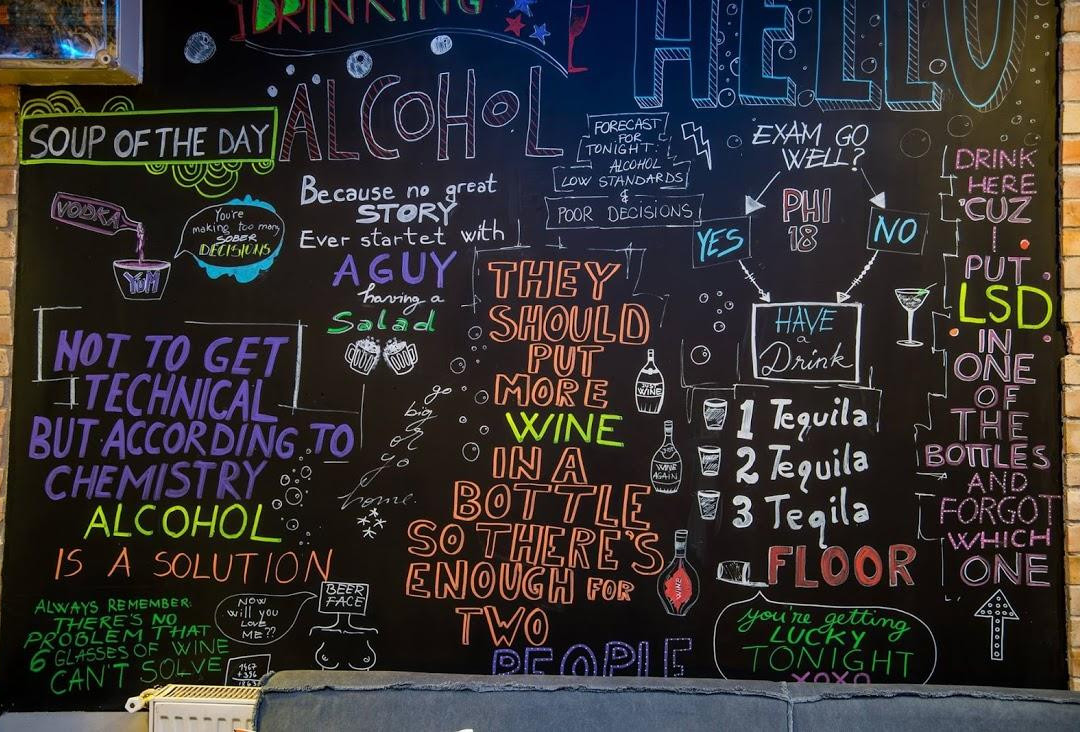 DRINKING
ALCOHOL
HELLO
SOUP OF THE DAY
VODKA
YUM
You're
making too many
SOBER
DECISIONS
Because no great
STORY
Ever startet with
A GUY
having a
Salad
FORECAST
FOR
TONIGHT:
ALCOHOL
LOW STANDARDS
&
POOR DECISIONS
EXAM GO
WELL?
PHI
18
YES
NO
HAVE
a
Drink
1 Tequila
2 Tequila
3 Teqila
FLOOR
you're getting
LUCKY
TONIGHT
XOXO
DRINK
HERE
'CUZ
I
PUT
LSD
IN
ONE
OF
THE
BOTTLES
AND
FORGOT
WHICH
ONE
NOT TO GET
TECHNICAL
BUT ACCORDING TO
CHEMISTRY
ALCOHOL
IS A SOLUTION
go
big
or
go
home.
THEY
SHOULD
PUT
MORE
WINE
IN A
BOTTLE
SO THERE'S
ENOUGH FOR
TWO
PEOPLE
JUST
WINE
WINE
AGAIN
WINE
ALWAYS REMEMBER:
THERE'S NO
PROBLEM THAT
6 GLASSES OF WINE
CAN'T SOLVE
NOW
will you
LOVE
ME??
BEER
FACE